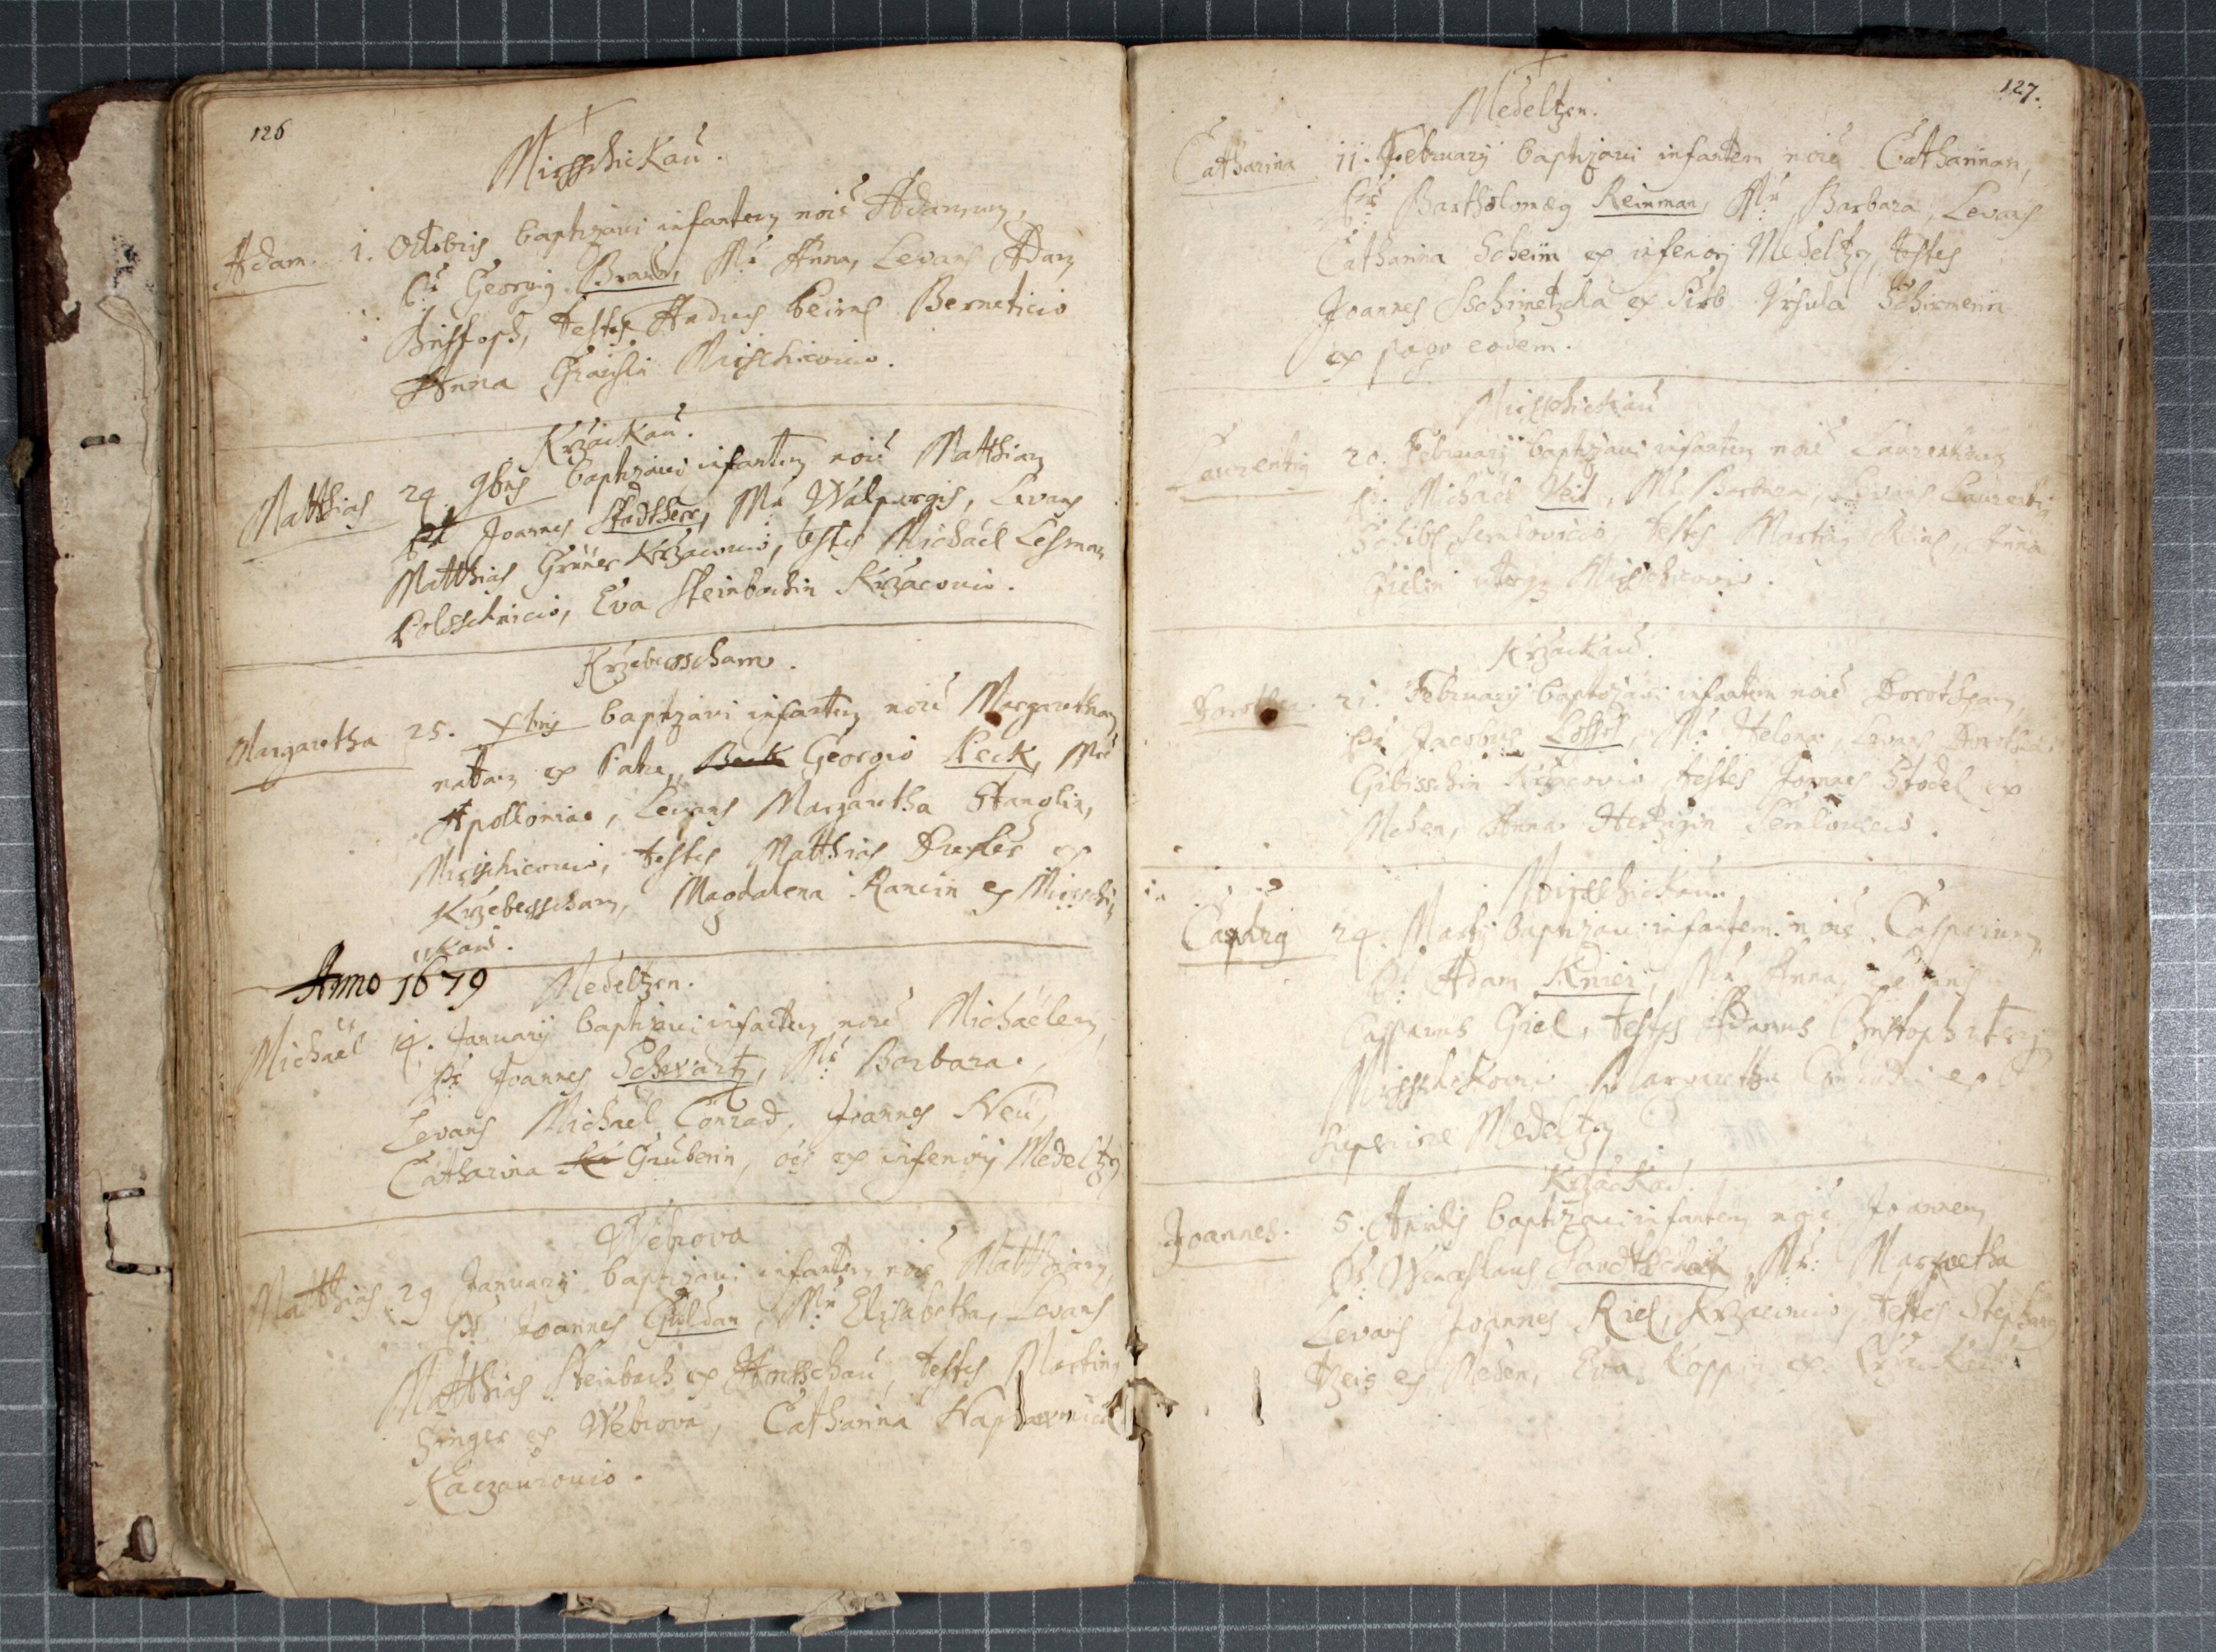 126
Mirsschickaū.
Adam. 1. Octobris baptizavi infantem noiē Adamum,
Pr: Georgig Braun, Mr: Anna, Levans Adam
Christoph, testes Andres Beirns Berneticio
Anna Gräuslin Mirschicovio.
Krzackaū.
Matthias 24 9bris baptizavi infantem noiē Matthiam
Pr Joannes Stadtherr, Mr Walpurgis, Levans
Matthias Grüner Krzacovio, testes Michäel Lesman
Polsschnicio, Eva Steinbachin Krzacovio.
Krzebesscham.
Margaretha 25. Xbris baptizavi infantem noiē Margaretham
natam ex Patre Georgio Peck, Mrē
Apollonia, Levans Margaretha Stanglin,
Mirschicovio, testes Matthias Drexler ex
Krzebesscham, Magdalena Rancin ex Mirsschi
ckaū.
Anno 1679 Medeltzen.
Michaël 4. Januarij baptizavi infantem noiē Michaëlem,
Pr Joannes Schwartz, Mr: Barbara,
Levans Michael Conrad, Joannes Neü,
Catharina Gruberin, oēs ex inferiorj Medeltzen
Webrova
Matthias 29 Januarij baptizavi infantem noiē Matthiam,
Pr Joannes Guldan, Mr Elisabetha, Levans
Matthias Steinbach ex Amtschaū, testes Marting
Singer ex Webrova, Catharina
Raczaurovio.
127.
Medeltzen.
Catharina 11. February baptizavi infantem noiē Catharinam,
Pr Bartholomeg Reinman, Mr Barbara, Levans
Catharina Scheiin ex inferiorj Medeltzen, testes
Joannes Sschimetzcka ex Sirb Vrsula Schirmerin
ex pago eodem.
Mirsschickaū
Laurentig 20. Februarij baptizavi infantem noiē Laurentium
Pr. Michäel Veit, Mr Barbara, Levans Laurentig
Schibs Semlovicio, testes Marting Reins, Anna
Gielin utergz Mirsschicovio.
Krzackaū.
Dorothea. 21. Februarij baptizavi infantem noiē Dorotheam,
Pr Jacobus Löffel, Mr Helena, Levans Dorothea
Gibisschin Krzacovio, testes Joannes Stodel ex
Meden, Anna Hertzigin Semlovicio.
Mirsschickaū.
Casparg 24. Martij baptizavi infantem noiē Casparum,
Pr: Adam Knier, Mr Anna, Levans
Casparus Giel, testes Adamus Christoph uterqz
Mirsschikovio Margaretha ex
superiore Medeltzen
Krzackaū.
Joannes. 5. Aprilis baptizavi infantem noiē Joannem,
Pr: Wenceslaus Mr: Margaretha
Levans Joannes Riel, Krzacovio, testes Stephang
Tzeis ex Meden, Eva Koppin ex Krzackaū.